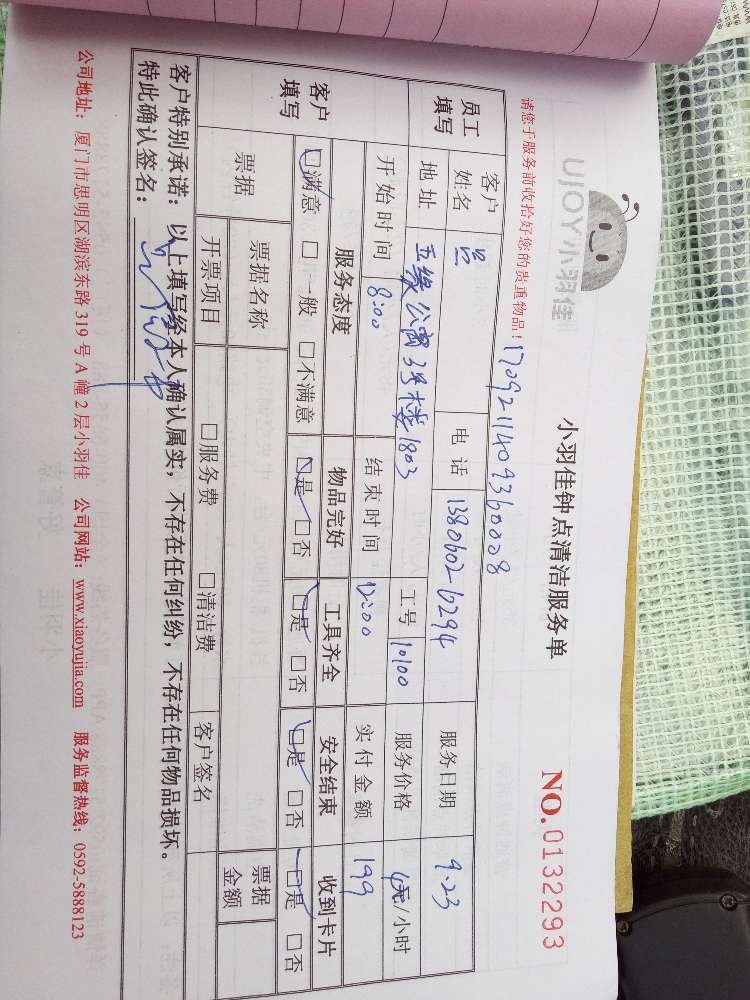 UJOY小羽佳
小羽佳钟点清洁服务单
NO.0132293
请您于服务前收拾好您的贵重物品！
1709211409360008
员工填写 客户姓名 吕 电话 13806026294 服务日期 9.23
地址 五缘公寓3号楼1803 工号 10100 服务价格 4元/小时
开始时间 8:00 结束时间 12:00 实付金额 199
客户填写 服务态度 物品完好 工具齐全 安全结束 收到卡片
□满意 □一般 □不满意 □是 □否 □是 □否 □是 □否 □是 □否
票据 票据名称 票据金额
开票项目 □服务费 □清洁费 客户签名
客户特别承诺：以上填写经本人确认属实，不存在任何纠纷，不存在任何物品损坏。
特此确认签名：
公司地址：厦门市思明区湖滨东路 319 号 A 幢 2 层小羽佳 公司网站：www.xiaoyujia.com 服务监督热线：0592-5888123